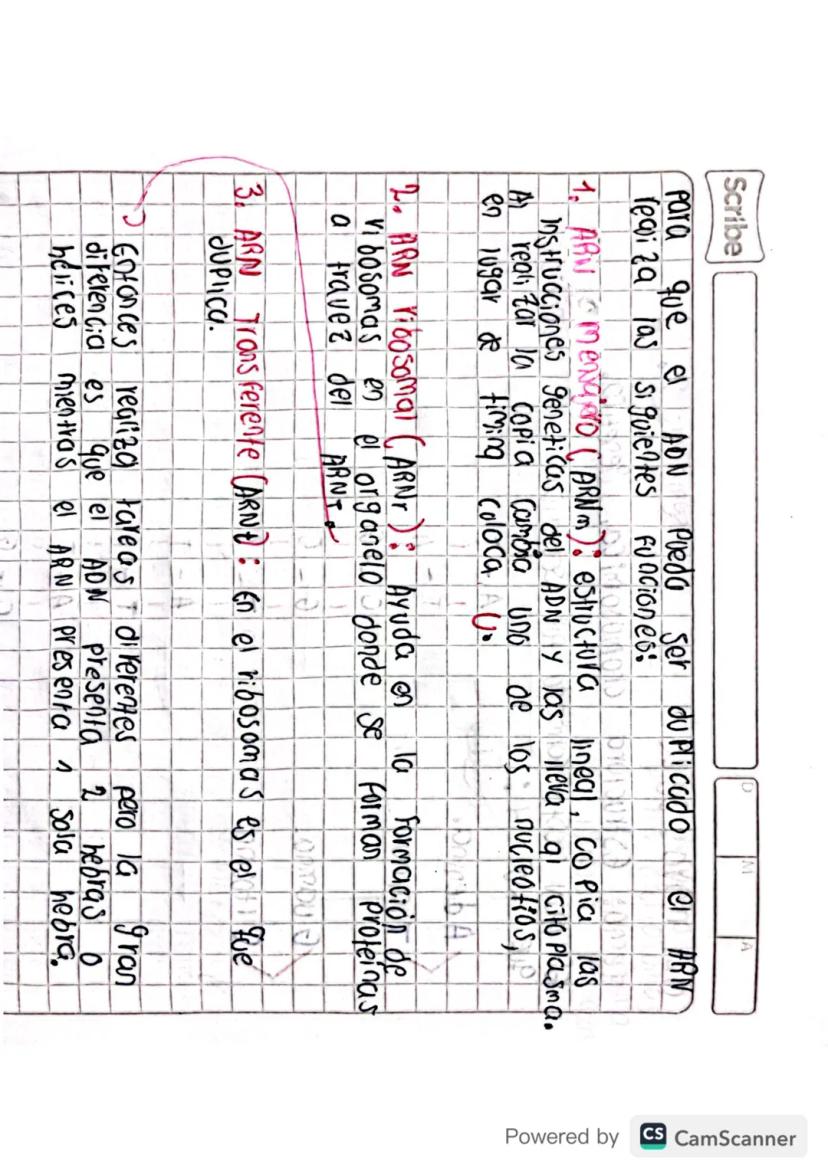 Scribe
D M A
para que el ADN pueda ser duplicado el ARN
realiza las siguientes funciones:
1. ARN mensajero (ARNm): estructura lineal, copia las
instrucciones geneticas del ADN y las lleva al citoplasma.
Al realizar la copia cambia uno de los nucleotios,
en lugar de timina coloca U.
2. ARN ribosomal (ARNr): Ayuda en la formación de
ribosomas en el organelo donde se forman proteínas
a travez del ARNT.
3. ARN Transferente (ARNt): en el ribosomas es el que
duplica.
Entonces realiza tareas diferentes pero la gran
diferencia es que el ADN presenta 2 hebras o
hélices mientras el ARN presenta 1 sola hebra.
Powered by CS CamScanner